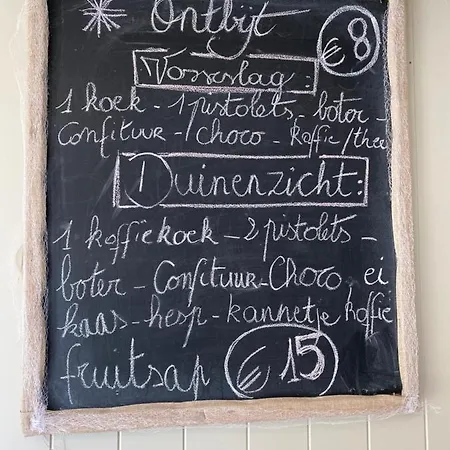 Ontbijt
€ 8
Vosseslag:
1 koek - 1 pistolets - boter -
Confituur - Choco - Koffie/thee
Duinenzicht:
1 koffiekoek - 2 pistolets -
boter - Confituur - Choco ei
kaas - hesp - kannetje koffie
fruitsap € 15